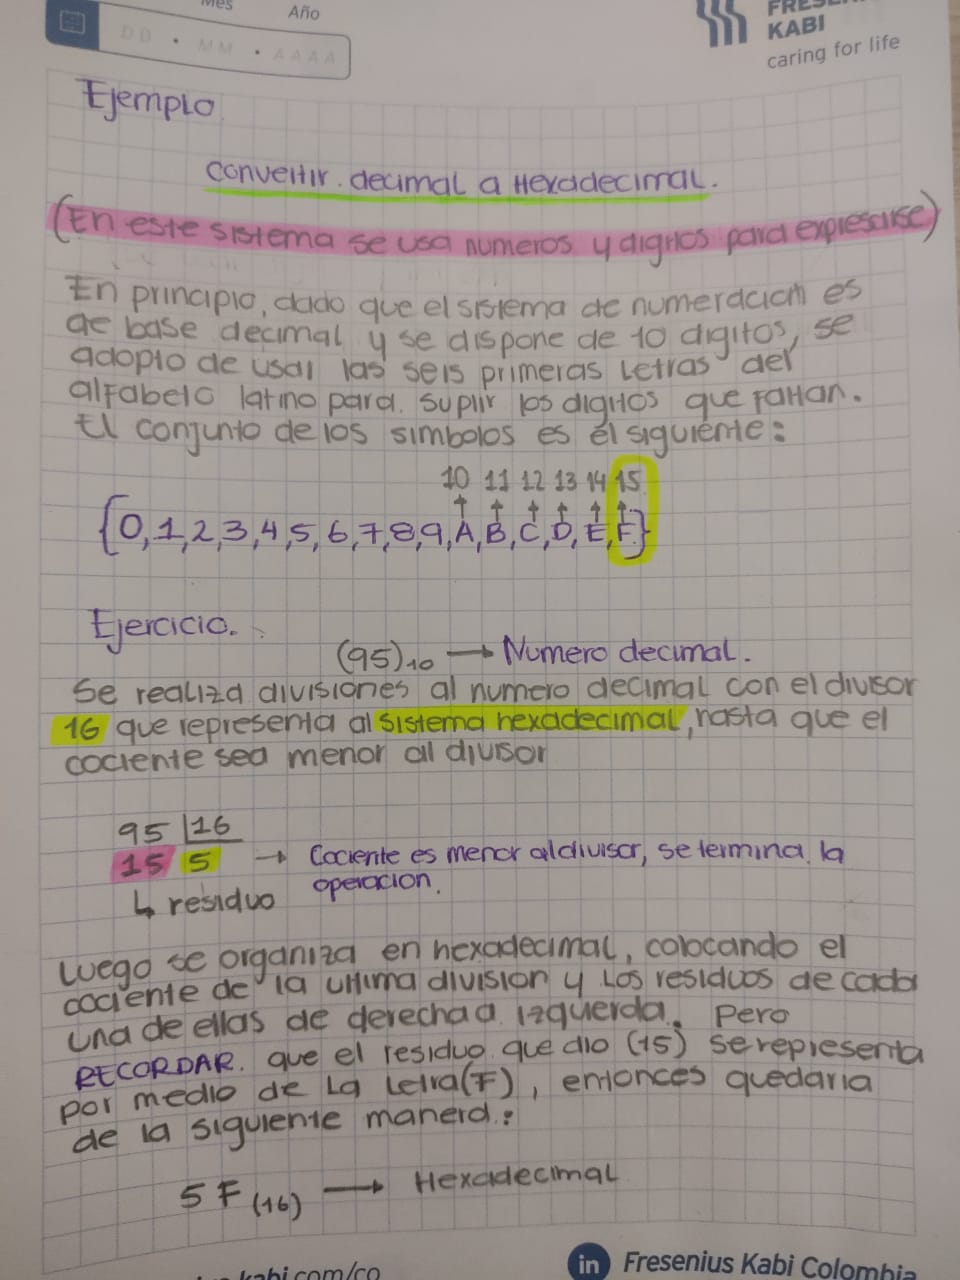 Mes Año
DD • MM • AAAA
FRESENIUS
KABI
caring for life
Ejemplo
Convertir decimal a Hexadecimal.
(En este sistema se usa numeros y digitos para expresarse)
En principio, dado que el sistema de numeracion es
de base decimal y se dispone de 10 digitos, se
adopto de usar las seis primeras Letras del
alfabeto latino para suplir los digitos que faltan.
El conjunto de los simbolos es el siguiente:
10 11 12 13 14 15
{0,1,2,3,4,5,6,7,8,9,A,B,C,D,E,F}
Ejercicio.
(95)₁₀ → Numero decimal.
Se realiza divisiones al numero decimal con el divisor
16 que representa al sistema hexadecimal, hasta que el
cociente sea menor al divisor
95 16
15 5 → Cociente es menor al divisor, se termina la
operacion.
↳ residuo
Luego se organiza en hexadecimal, colocando el
cociente de la ultima division y Los residuos de cada
una de ellas de derecha a izquerda. Pero
RECORDAR. que el residuo que dio (15) se representa
por medio de La Letra (F), entonces quedaria
de la siguiente manera:
5 F (16) → Hexadecimal
kabi.com/co
in Fresenius Kabi Colombia